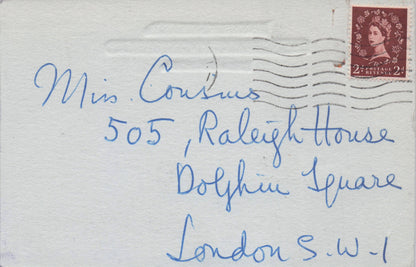 2d POSTAGE REVENUE 2d
Miss. Cousins
505, Raleigh House
Dolphin Square
London S.W-1